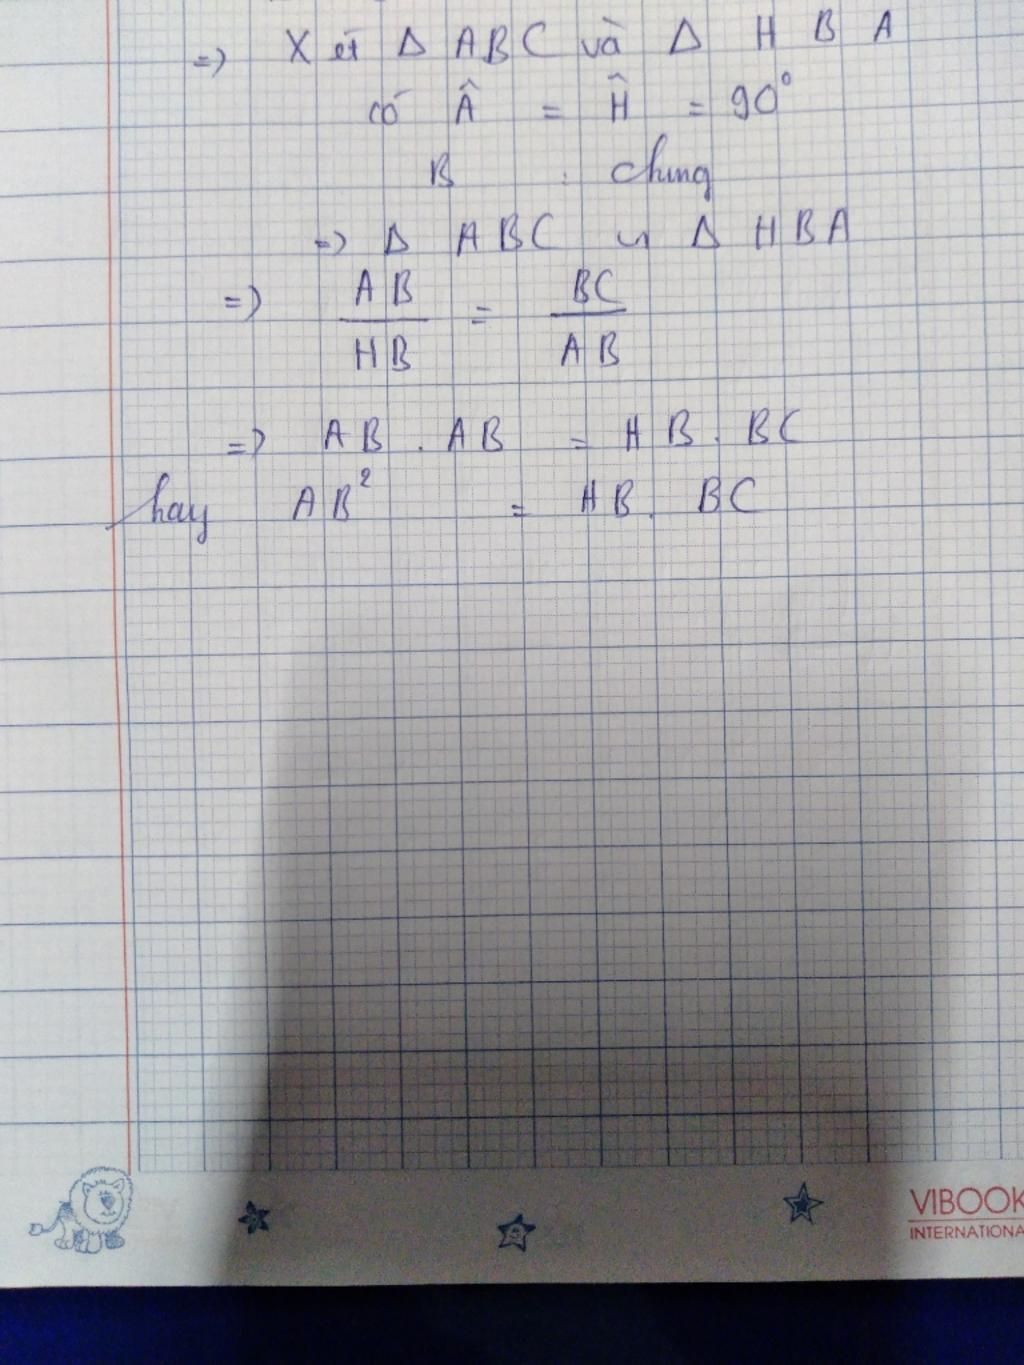 => Xét Δ ABC và Δ HBA
có Â = Ĥ = 90°
B : chung
=> Δ ABC ∽ Δ HBA
=> AB/HB = BC/AB
=> AB . AB = HB . BC
hay AB² = HB . BC
VIBOOK
INTERNATIONA